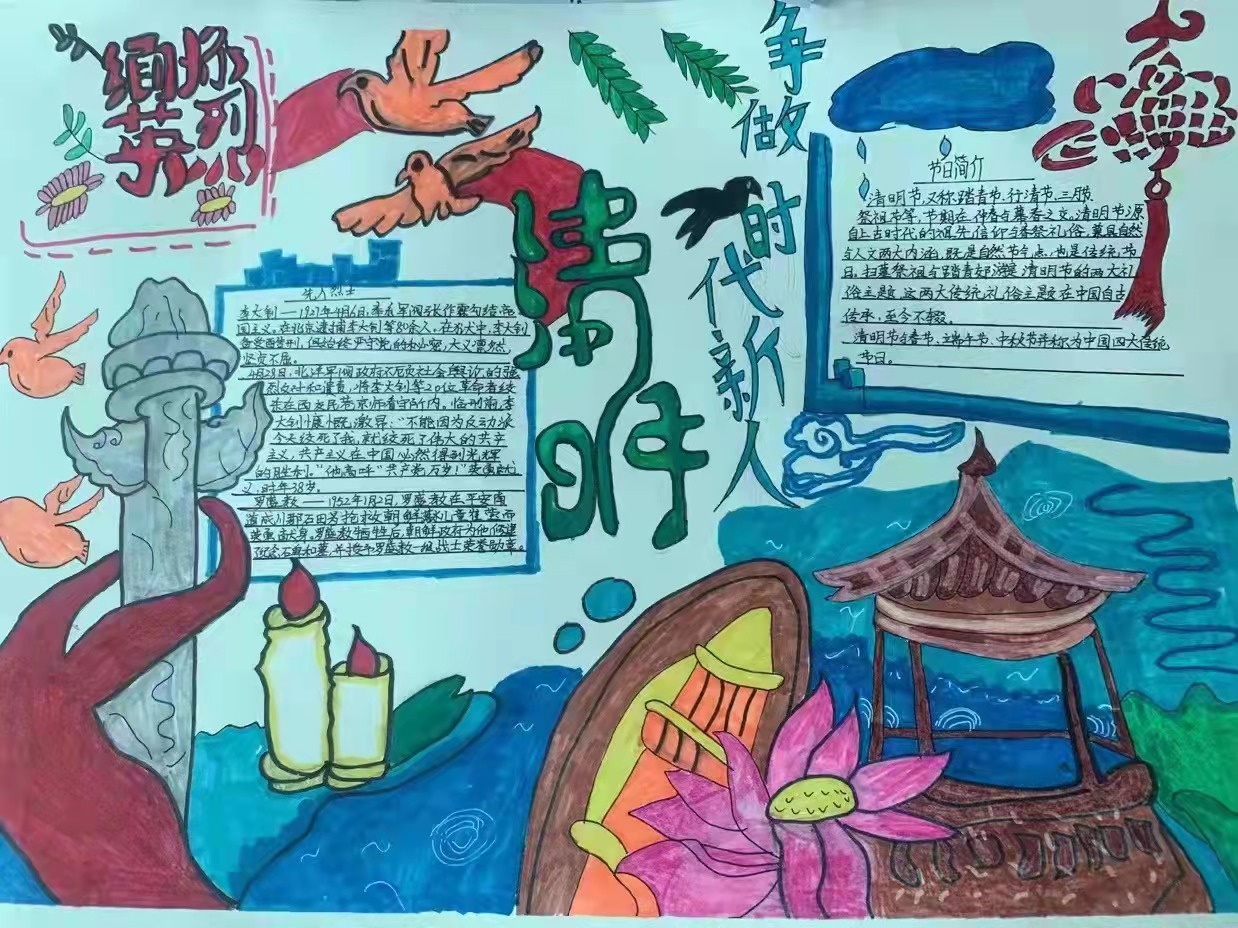 缅怀
英烈
清明
争做时代新人
先人烈士
李大钊——1927年4月6日,奉系军阀张作霖勾结帝
国主义,在北京逮捕李大钊等80余人,在狱中,李大钊
备受酷刑,但始终严守党的秘密,大义凛然
坚贞不屈。
4月28日,北洋军阀政府不顾社会舆论的强
烈反对和谴责,将李大钊等20位革命者绞
杀在西交民巷京师看守所内。临刑前,李
大钊慷慨激昂:“不能因为反动派
今天绞死了我,就绞死了伟大的共产
主义,共产主义在中国必然得到光辉
的胜利。”他高呼“共产党万岁!”英勇就
义,时年38岁。
罗盛教——1952年1月2日,罗盛教在平安南
道成川郡石田里为抢救朝鲜落水儿童崔莹而
英勇献身。罗盛教牺牲后,朝鲜政府为他修建
纪念石碑和墓,并授予罗盛教一级战士荣誉勋章。
节日简介
清明节,又称踏青节、行清节、三月节
祭祖节等,节期在仲春与暮春之交。清明节源
自上古时代的祖先信仰与春祭礼俗,兼具自然
与人文两大内涵,既是自然节气点,也是传统节
日,扫墓祭祖与踏青郊游是清明节的两大礼
俗主题,这两大传统礼俗主题在中国自古
传承,至今不辍。
清明节与春节、端午节、中秋节并称为中国四大传统
节日。